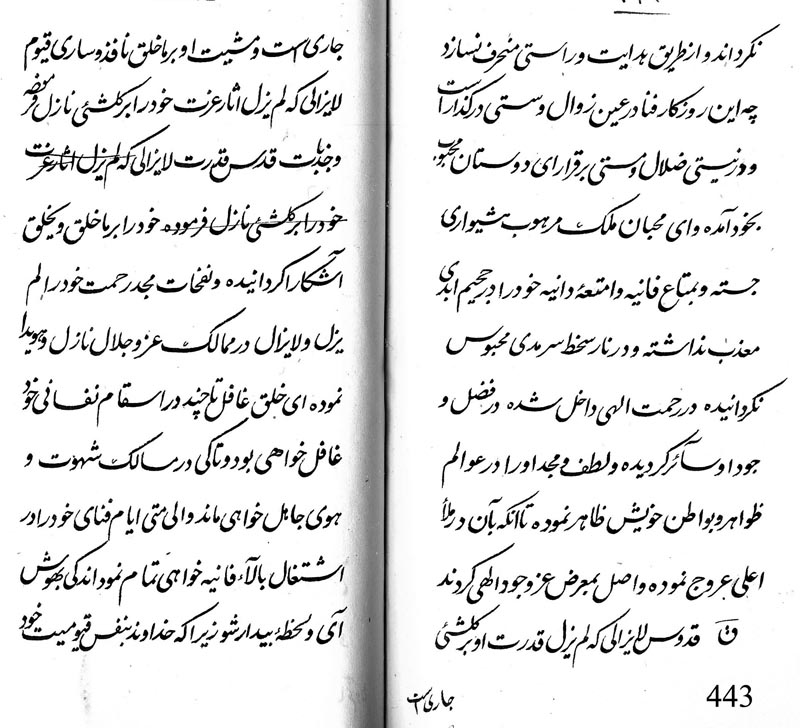 نکرداند و از طریق هدایت و راستی منحرف نسازد
چه این روزکار فنا در عین زوال و سستی در کذار است
و در نیستی ضلال و مستی برقرار ای دوستان محبوب
بخود آمده و ای محبان ملک مرهوب هشیواری
جسته و بمتاع فانیه و امتعهٔ دانیه خود را در جحیم ابدی
معذب نداشته و در نار سخط سرمدی محبوس
نکردانیده در رحمت الهی داخل شده در فضل و
جود او سآئر کردیده و لطف و مجد او را در عوالم
ظواهر و بواطن خویش ظاهر نموده تا انکه بآن در ملأ
اعلی عروج نموده واصل بمعرض عز وجود الهی کردند
ق قدوس لایزالی که لم یزل قدرت او بر کلشئی
443
جاری است
جاری است و مشیت او بر ما خلق نافذ و ساری قیوم
لایزالی که لم یزل اثار عزت خود را بر کلشئی نازل فرموده
و جذبات قدس قدرت لایزالی که لم یزل اثار عزت
خود را بر کلشئی نازل فرموده خود را بر ما خلق و یخلق
آشکارا کردانیده و نفحات مجد رحمت خود را لم
یزل و لایزال در ممالک عز و جلال نازل و هویدا
نموده ای خلق غافل تا چند در اسقام نفسانی خود
غافل خواهی بود و تا کی در مسالک شهوت و
هوی جاهل خواهی ماند و الی متی ایام فنای خود را در
اشتغال بالآء فانیه خواهی تمام نمود اندکی بهوش
آی و لحظهٔ بیدار شو زیرا که خداوند بنفس قیومیت خود